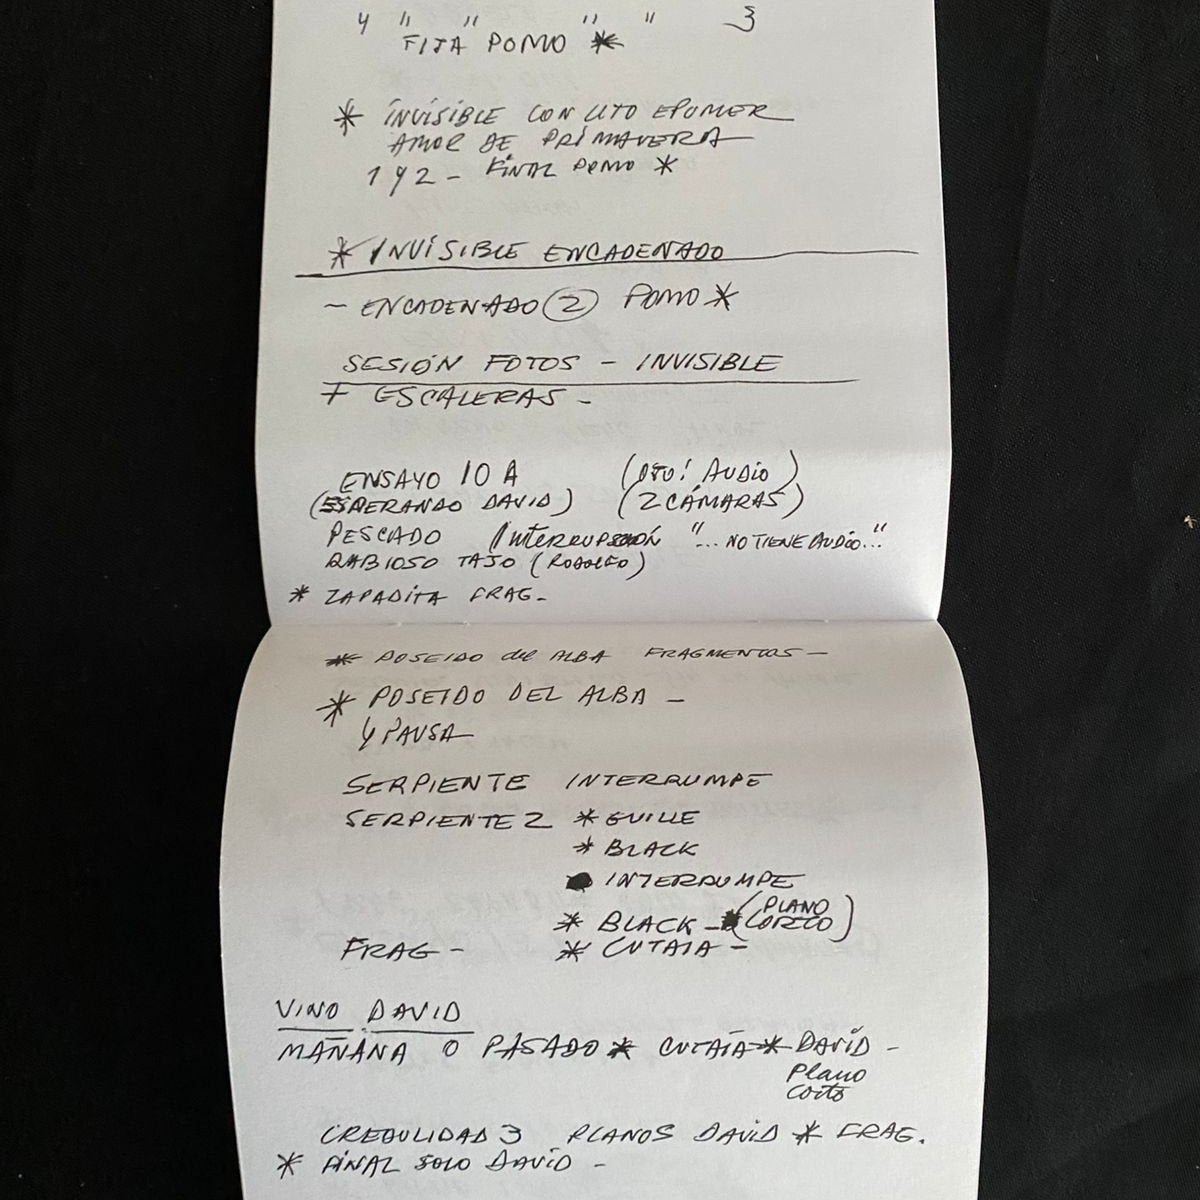 Y " " " " 3
FIJA POMO *
* INVISIBLE CON LITO EPUMER
AMOR DE PRIMAVERA
1 Y 2 - FINAL POMO *
* INVISIBLE ENCADENADO
- ENCADENADO 2 POMO *
SESIÓN FOTOS - INVISIBLE
+ ESCALERAS -
ENSAYO 10 A (OJO! AUDIO)
(ESPERANDO DAVID) (2 CÁMARAS)
PESCADO INTERRUPCIÓN "... NO TIENE AUDIO..."
RABIOSO TAJO (RODOLFO)
* ZAPADITA FRAG -
* POSEIDO del ALBA FRAGMENTOS -
* POSEIDO DEL ALBA -
Y PAUSA
SERPIENTE INTERRUMPE
SERPIENTE 2 * GUILLE
* BLACK
INTERRUMPE
* BLACK - * (PLANO CORTO)
FRAG - * CUTAIA -
VINO DAVID
MAÑANA O PASADO * CUTAIA * DAVID -
Plano
corto
CREDULIDAD 3 PLANOS DAVID * FRAG.
* FINAL SOLO DAVID -